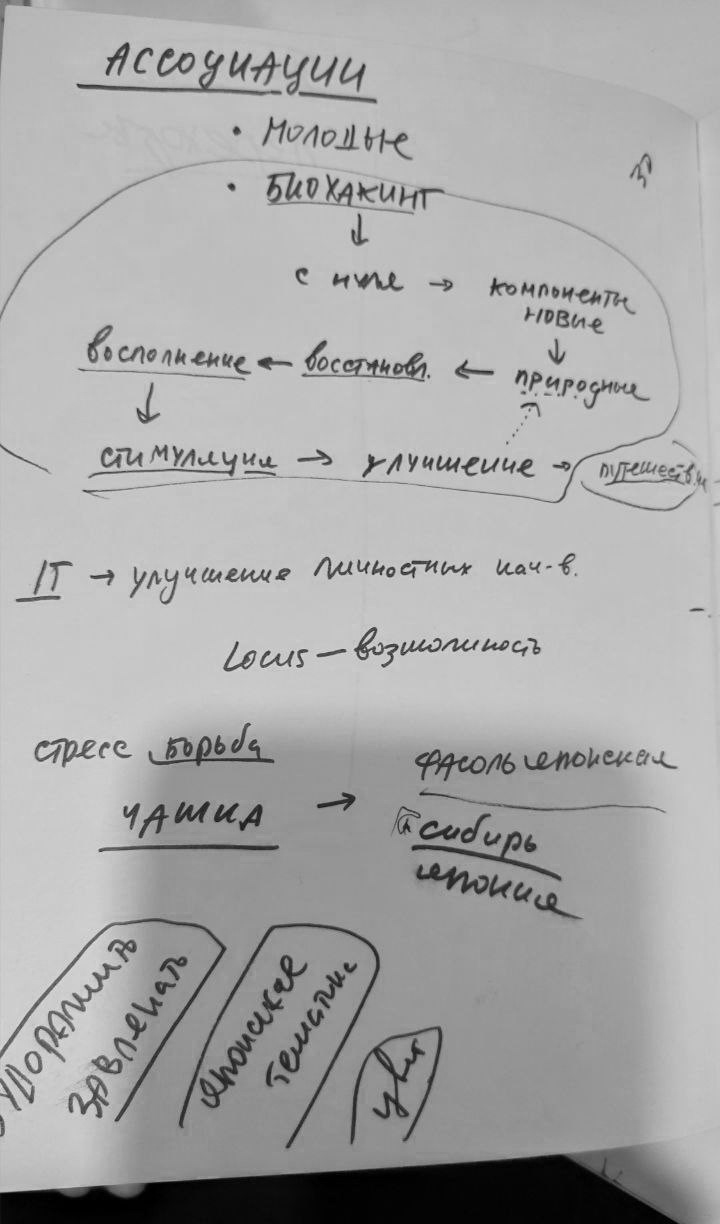 АССОЦИАЦИИ
• МОЛОДЫЕ
• БИОХАКИНГ
↓
с нуля → компоненты
новые
↓
восполнение ← восстановл. ← природные
↓
стимуляция → улучшение → путешеств.
IT → улучшение личностных кач-в.
Locus – возможность
стресс борьба
ЧАШКА → ФАСОЛЬ японская
сибирь
япония
БУДОРАЖИТЬ
ЗАВЛЕКАТЬ
японская
тематика
цвет